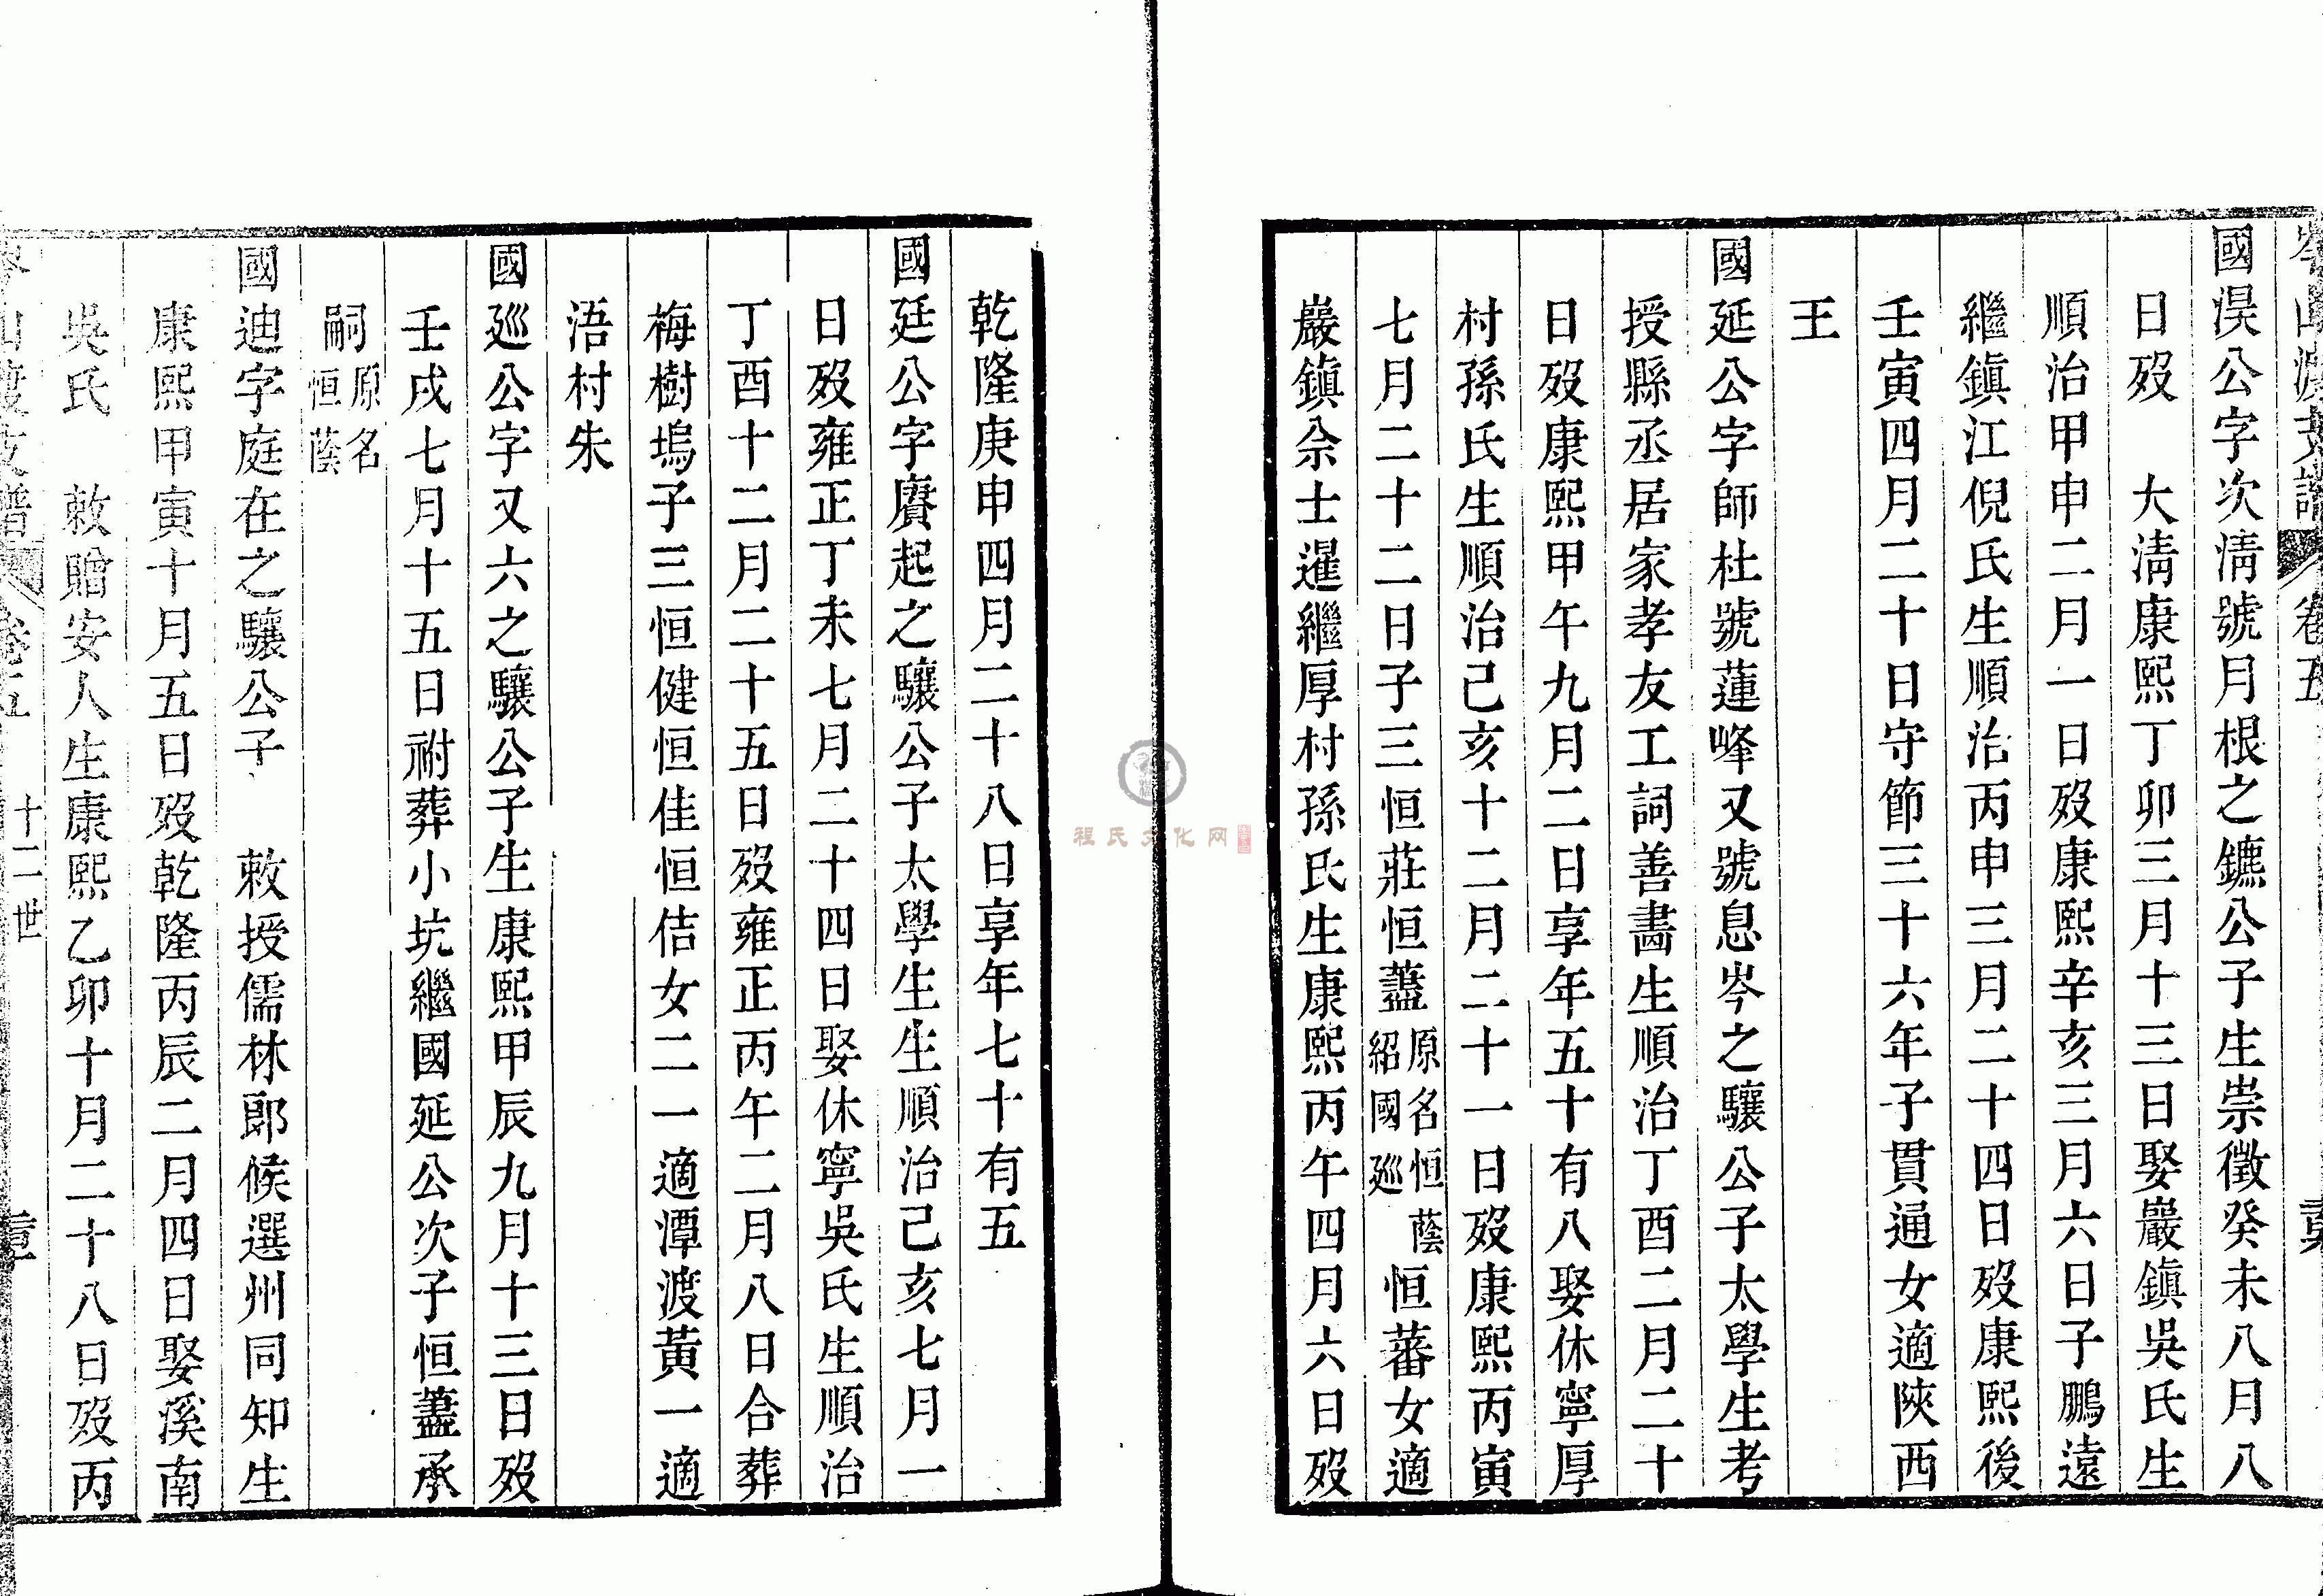 岑山渡支譜
卷五
國淏公字次淸號月根之鑣公子生崇徵癸未八月八
日歿 大淸康熙丁卯三月十三日娶巖鎮吳氏生
順治甲申二月一日歿康熙辛亥三月六日子鵬遠
繼鎮江倪氏生順治丙申三月二十四日歿康熙後
壬寅四月二十日守節三十六年子貫通女適陝西
王
國延公字師杜號蓮峰又號息岑之驤公子太學生考
授縣丞居家孝友工詞善畵生順治丁酉二月二十
日歿康熙甲午九月二日享年五十有八娶休寧厚
村孫氏生順治己亥十二月二十一日歿康熙丙寅
七月二十二日子三恒莊恒藎原名恒蔭紹國廵恒蕃女適
巖鎮佘士暹繼厚村孫氏生康熙丙午四月六日歿
程氏文化网
乾隆庚申四月二十八日享年七十有五
國廷公字賡起之驤公子太學生生順治己亥七月一
日歿雍正丁未七月二十四日娶休寧吳氏生順治
丁酉十二月二十五日歿雍正丙午二月八日合葬
梅樹塢子三恒健恒佳恒佶女二一適潭渡黃一適
浯村朱
國廵公字又六之驤公子生康熙甲辰九月十三日歿
壬戌七月十五日祔葬小坑繼國延公次子恒藎承
嗣原名恒蔭
國迪字庭在之驤公子 敕授儒林郎候選州同知生
康熙甲寅十月五日歿乾隆丙辰二月四日娶溪南
吳氏 敕贈安人生康熙乙卯十月二十八日歿丙
岑山渡支譜
卷五
十二世